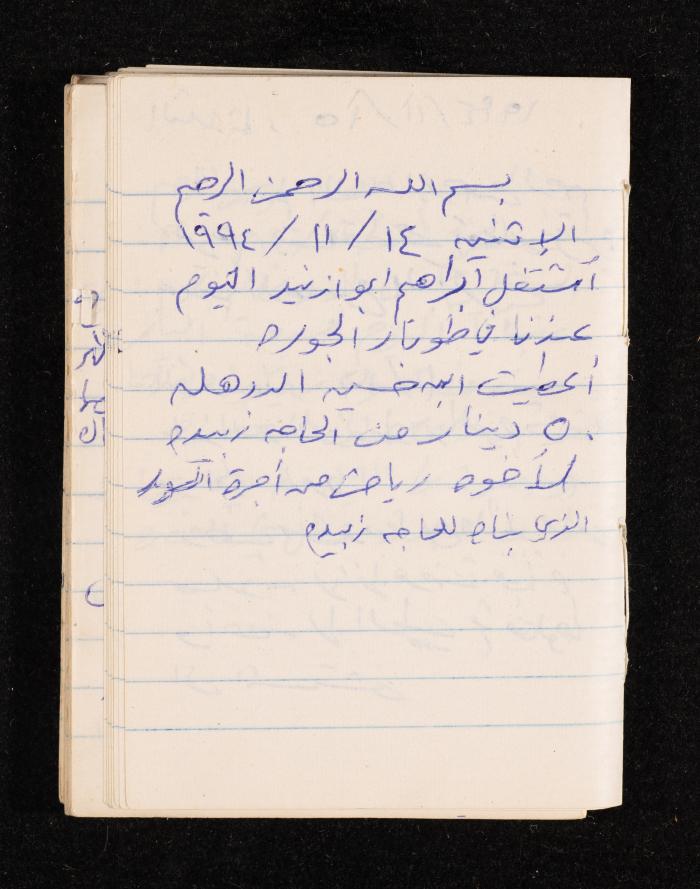 بسم الله الرحمن الرحيم
الاثنين ١٤ / ١١ / ١٩٩٤
أشتغل ابراهيم ابو ازنيد اليوم
عندنا في طونار الجوره
أعطيت ابن حسين الدرهله
٥٠ دينار من الحاجه زبيده
لأخوه رياض من أجرة السور
الذي بناه للحاجه زبيده